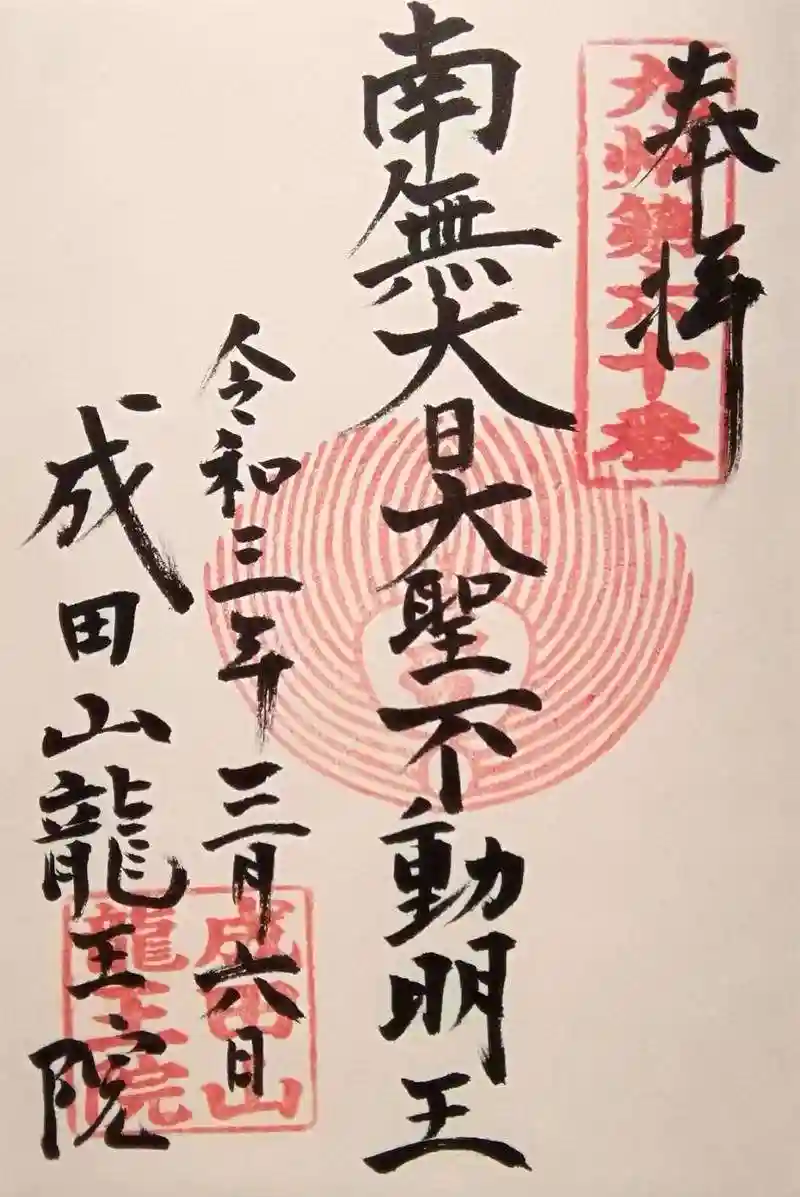 奉拝
九州第六十番
南無大日大聖不動明王
令和三年三月六日
成田山龍王院
成田山
龍王院